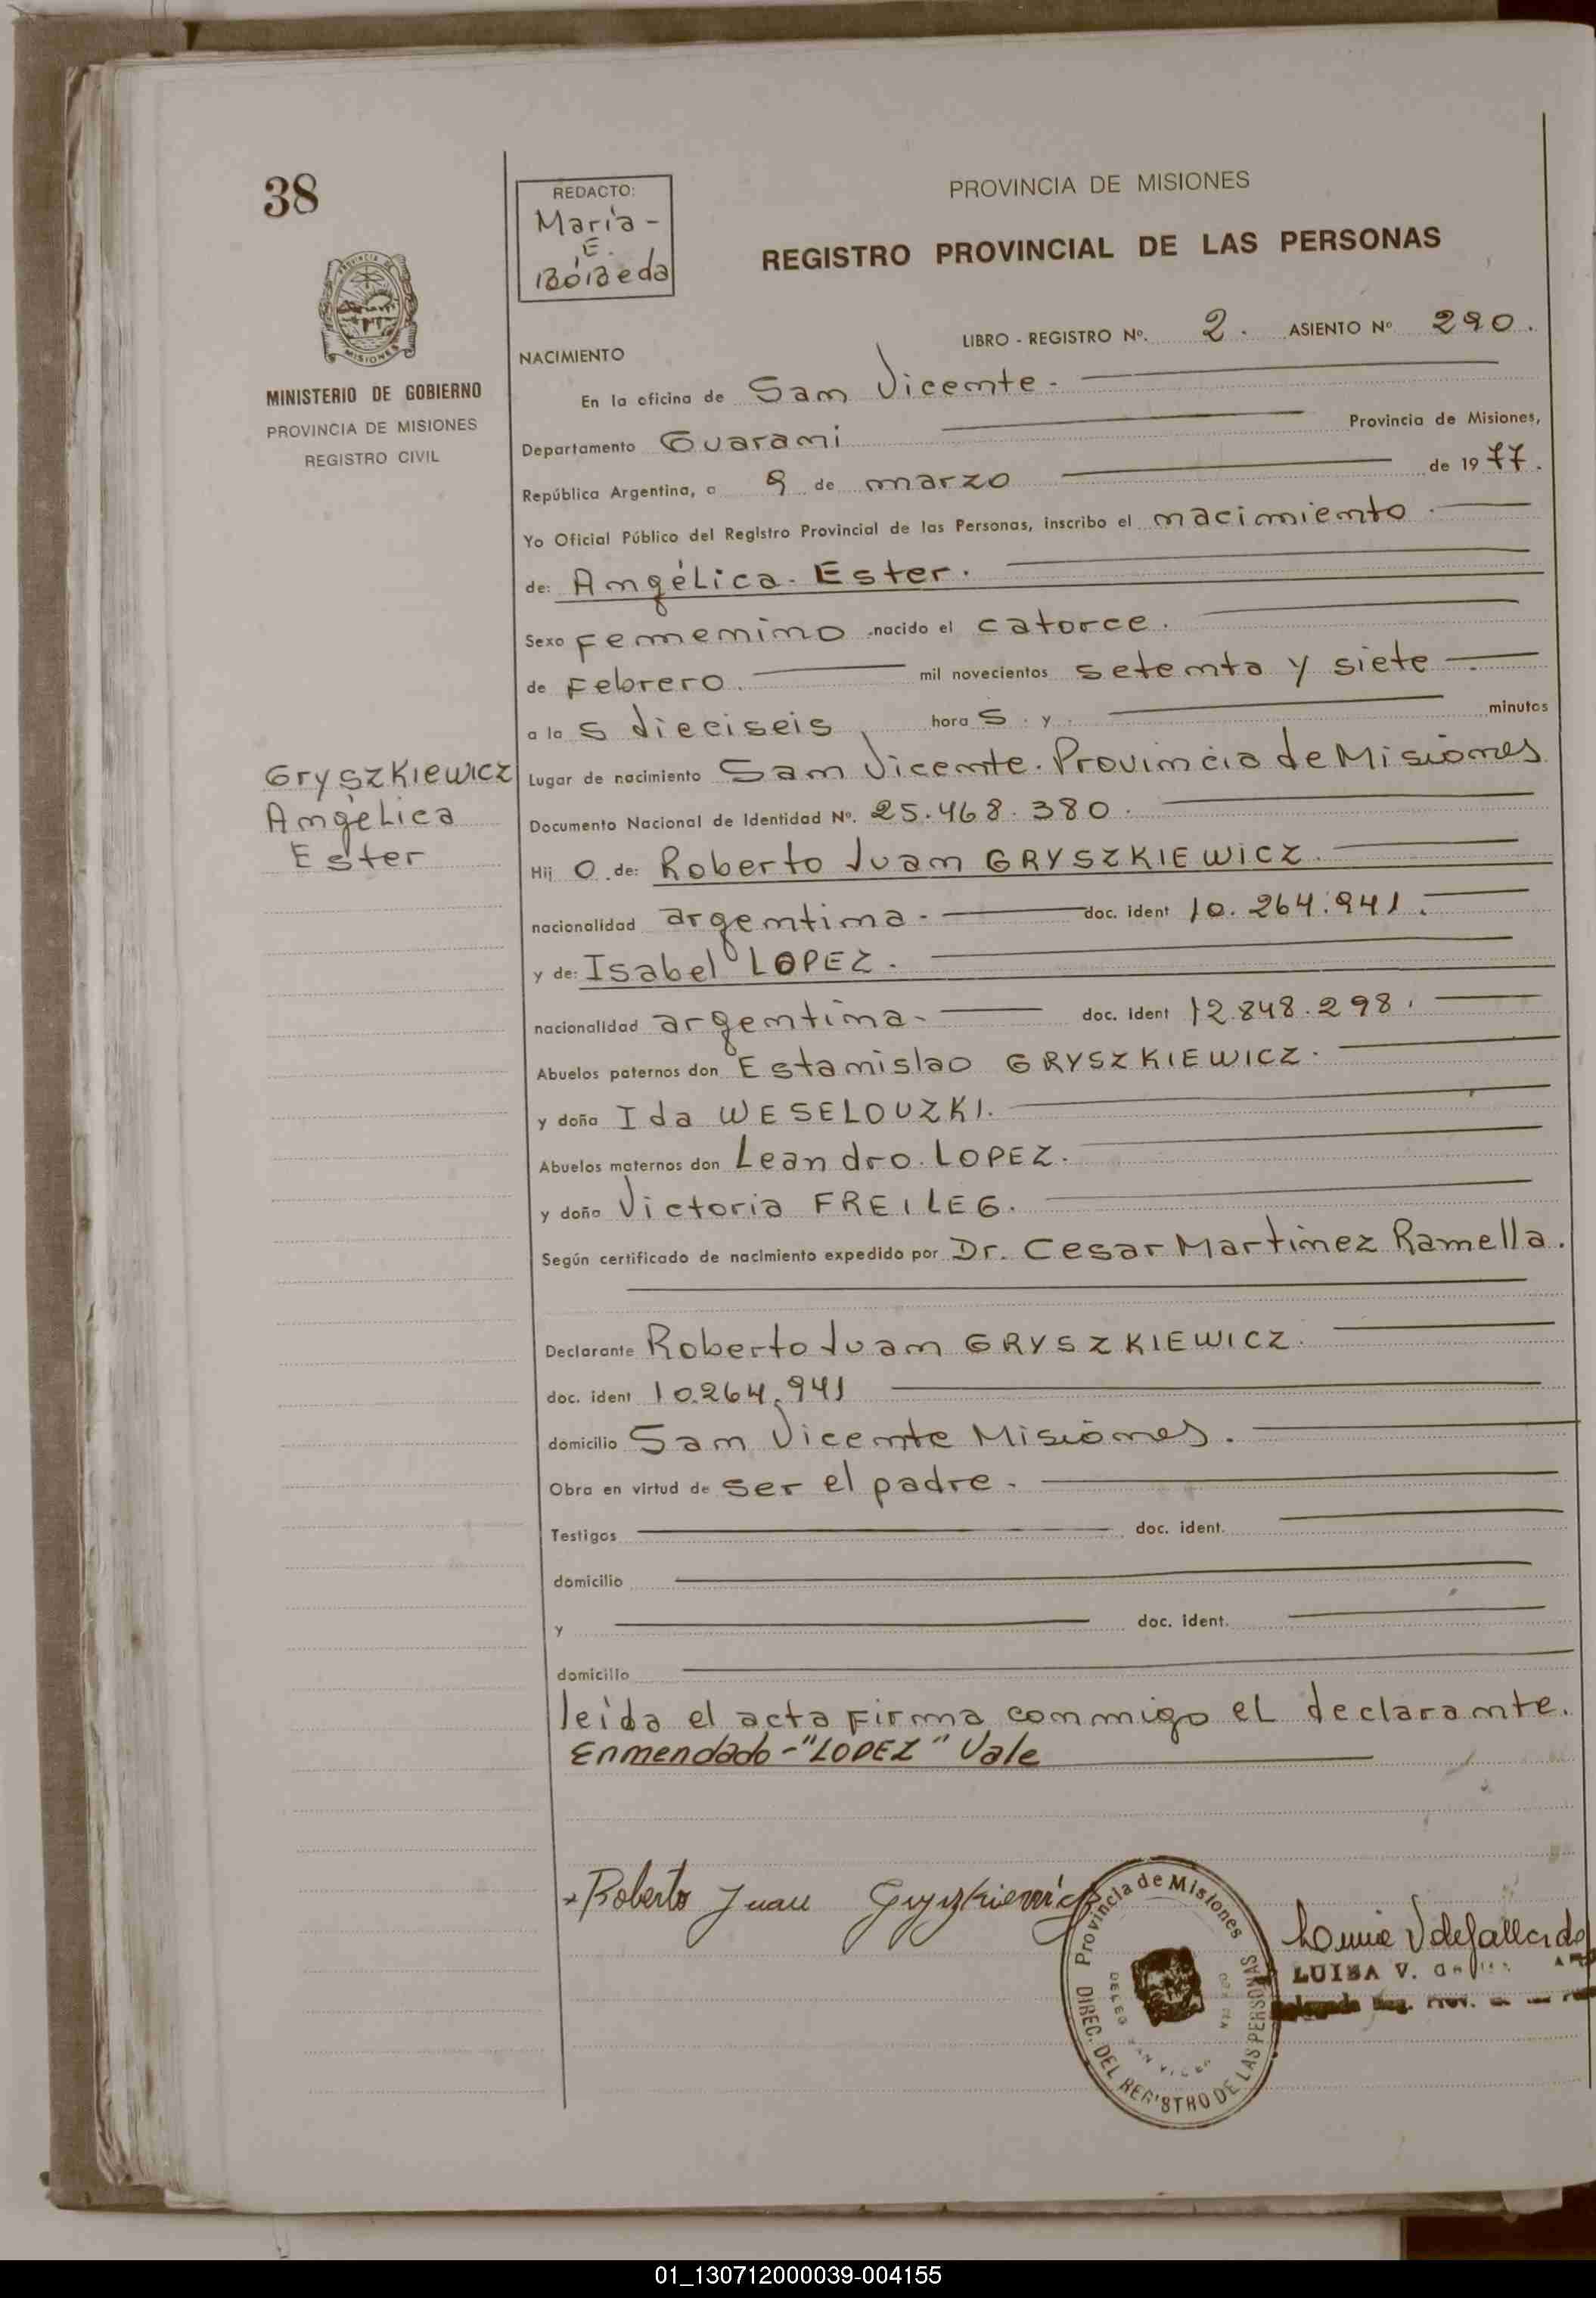 38
REDACTO:
María -
E.
Bóbeda
PROVINCIA DE MISIONES
REGISTRO PROVINCIAL DE LAS PERSONAS
PROVINCIA DE
MISIONES
MINISTERIO DE GOBIERNO
PROVINCIA DE MISIONES
REGISTRO CIVIL
LIBRO - REGISTRO Nº. 2. ASIENTO Nº 290.
NACIMIENTO
En la oficina de San Vicente -
Departamento Guarani Provincia de Misiones,
República Argentina, a 9 de marzo de 1977.
Yo Oficial Público del Registro Provincial de las Personas, inscribo el nacimiento.
de: Angélica. Ester.
Sexo Femenino nacido el catorce.
de Febrero. mil novecientos setenta y siete
a las dieciseis horas y minutos
Gryszkiewicz
Angélica
Ester
Lugar de nacimiento San Vicente. Provincia de Misiones
Documento Nacional de Identidad Nº. 25.468.380.
Hij o de: Roberto Juan GRYSZKIEWICZ.
nacionalidad argentina - doc. ident 10.264.941.
y de: Isabel LOPEZ.
nacionalidad argentina - doc. ident 12.848.298.
Abuelos paternos don Estanislao GRYSZKIEWICZ.
y doña Ida WESELOUZKI.
Abuelos maternos don Leandro. LOPEZ.
y doña Victoria FREILEG.
Según certificado de nacimiento expedido por Dr. Cesar Martinez Ramella.
Declarante Roberto Juan GRYSZKIEWICZ.
doc. ident 10.264.941
domicilio San Vicente Misiones.
Obra en virtud de ser el padre.
Testigos doc. ident.
domicilio
y doc. ident.
domicilio
leída el acta firma conmigo el declarante.
Enmendado-"LOPEZ" Vale
Roberto Juan Gryszkiewicz
Provincia de Misiones
DIREC. DEL REGISTRO DE LAS PERSONAS
LUISA V.
01_130712000039-004155